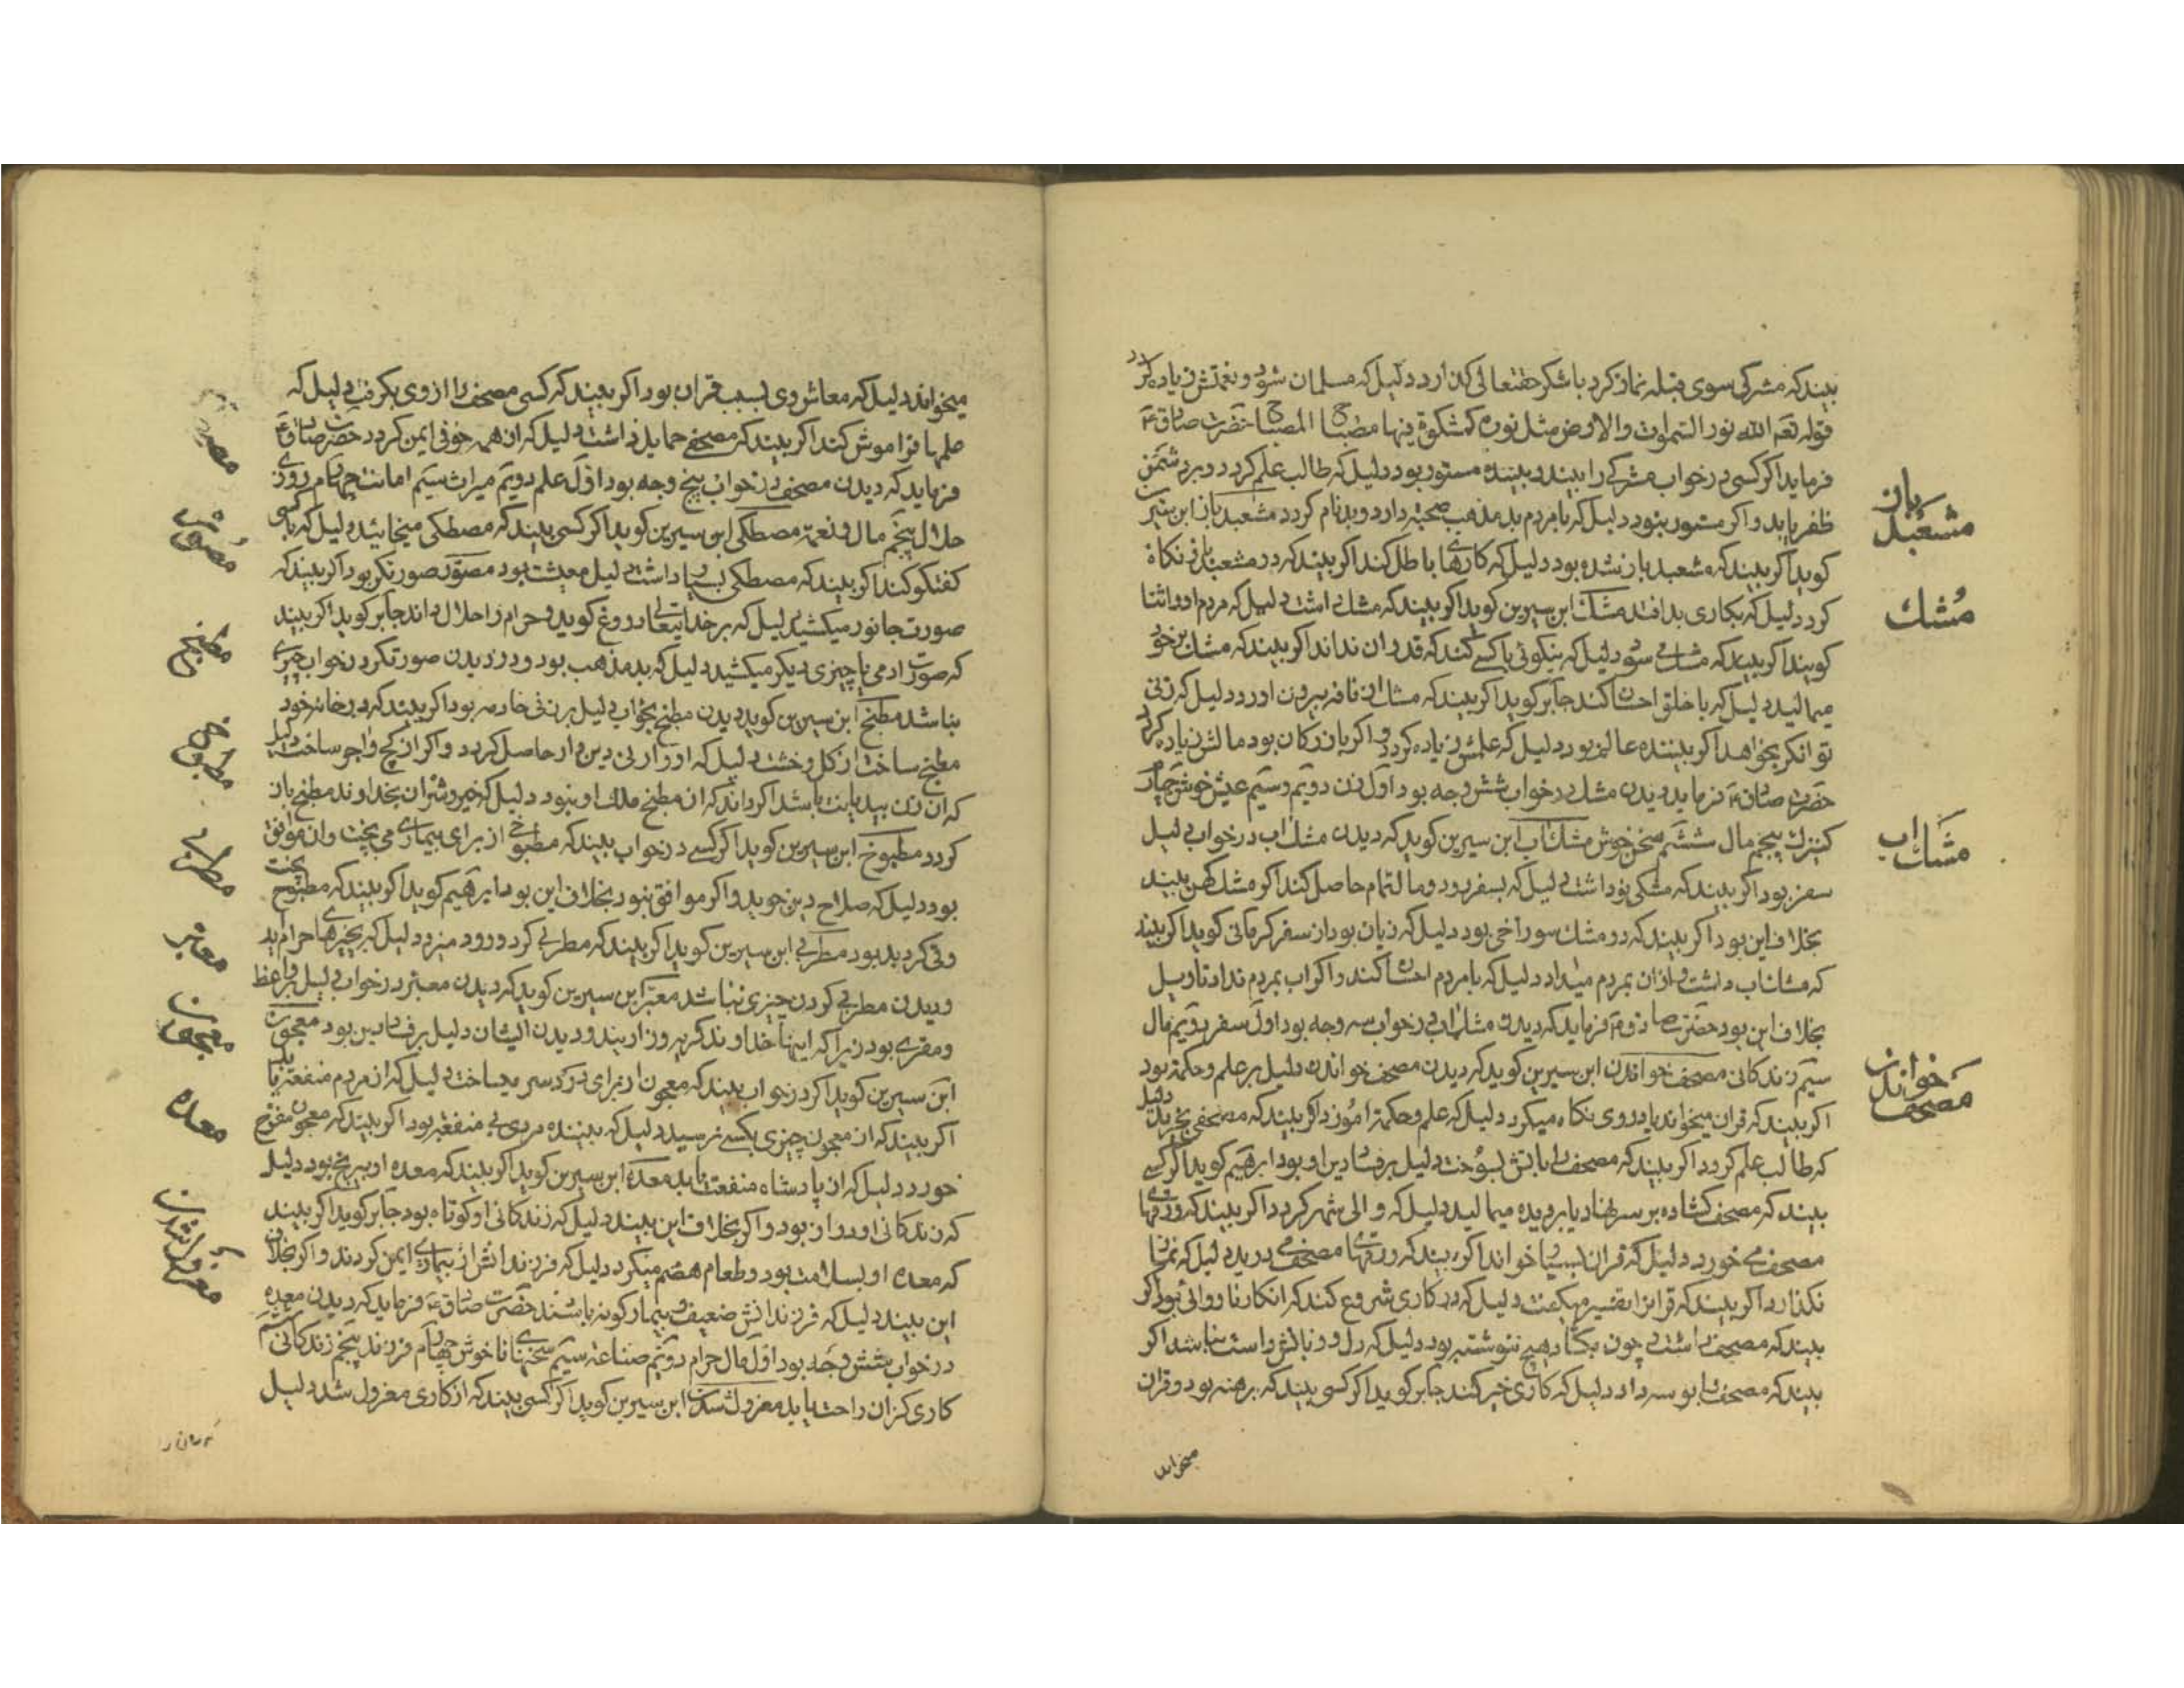 بیند که مشرکی سوی قبله نماز کرد یا شکر حقتعالی کذارد دلیل که مسلمان شود و نعمتش زیاده کردد
قوله تعه الله نور السموات والارض مثل نوره کمشکوة فیها مصباح المصباح حضرت صادقء
فرماید اکر کسی در خواب مشرکی را بیند و بیننده مستور بود دلیل که طالب علم کردد و بر دشمن
ظفر یابد و اکر مستور نبود دلیل که با مردم بد مذهب صحبة دارد و بدنام کردد مشعبد باز ابن سیرین
کوید اکر بیند که مشعبد باز شده بود دلیل که کارهای باطل کند اکر بیند که در مشعبد بازی نکاه
کرد دلیل که بکاری بد افتد مشک ابن سیرین کوید اکر بیند که مشک داشت دلیل که مردم او را ثنا
کویند اکر بیند که مشک می سود دلیل که نیکوئی با کسی کند که قدر ان نداند اکر بیند که مشک بر خود
میمالید دلیل که با خلق احسان کند جابر کوید اکر بیند که مشک از نافه بیرون اورد دلیل که زنی
توانکر بخواهد اکر بیننده عالم بود دلیل که علمش زیاده کردد و اکر بازرکان بود مالش زیاده کردد
حضرت صادقء فرماید دیدن مشک در خواب شش وجه بود اول زن دویم و سیم عیش خوش چهارم
کنیزک پنجم مال ششم سخن خوش مشک اب ابن سیرین کوید که دیدن مشک اب در خواب دلیل
سفر بود اکر بیند که مشکی نو داشت دلیل که بسفر رود و مال تمام حاصل کند اکر مشک کهن بیند
بخلاف این بود اکر بیند که در مشک سوراخی بود دلیل که زیان بود از سفر کرمانی کوید اکر بیند
که مشک اب داشت و از ان بمردم میداد دلیل که با مردم احسان کند و اکر اب بمردم نداد تاویل
بخلاف این بود حضرت صادقء فرماید که دیدن مشک اب در خواب سه وجه بود اول سفر دویم مال
سیم زندکانی مصحف خواندن ابن سیرین کوید که دیدن مصحف خواندن دلیل بر علم و حکمة بود
اکر بیند که قران میخواند یا در وی نکاه میکرد دلیل که علم و حکمة اموزد اکر بیند که مصحفی بخرید دلیل
که طالب علم کردد اکر بیند که مصحف را باتش بسوخت دلیل بر فساد دین او بود ابرهیم کوید اکر کسی
بیند که مصحف کشاده بر سر نهاد یا بر دیده میمالید دلیل که والی شهر کردد اکر بیند که ورقهای
مصحف می خورد دلیل که قران بسیار خواند اکر بیند که ورقهای مصحف می درید دلیل که نماز
نکذارد اکر بیند که قرانرا تفسیر میکفت دلیل که در کاری شروع کند که انکار ناروائی بود اکر
بیند که مصحف داشت چون بکشاد هیچ ننوشته بود دلیل که دل و زبانش راست نباشد اکر
بیند که مصحف را بوسه داد دلیل که کاری خیر کند جابر کوید اکر کسی بیند که برهنه بود و قران
میخواند
مشعبد باز
مشک
مشک اب
مصحف خواندن
میخواند دلیل که معاش وی بسبب قران بود اکر بیند که کسی مصحف را از وی بکرفت دلیل که
علمها فراموش کند اکر بیند که مصحفی حمایل داشت دلیل که ان همه خوفی ایمن کردد حضرت صادقء
فرماید که دیدن مصحف در خواب پنج وجه بود اول علم دویم میراث سیم امانت چهارم روزی
حلال پنجم مال و نعمة مصطکی ابن سیرین کوید اکر کسی بیند که مصطکی میخائید دلیل که با کسی
کفتکو کند اکر بیند که مصطکی بسیار داشت دلیل معیشت بود مصور صورتکر بود اکر بیند که
صورت جانور میکشید دلیل که بر خدایتعالی دروغ کوید و حرام را حلال داند جابر کوید اکر بیند
که صورت ادمی یا چیزی دیکر میکشید دلیل که بد مذهب بود و در دیدن صورتکر در خواب چیزی
نباشد مطبخ ابن سیرین کوید دیدن مطبخ بخواب دلیل بر زنی خادمه بود اکر بیند که در خانه خود
مطبخ ساخت از کل و خشت دلیل که او را زنی دین دار حاصل کردد و اکر از کچ و اجر ساخت دلیل
که ان زن بیدیانت باشد اکر داند که ان مطبخ ملک او نبود دلیل که خیر و شر ان بخداوند مطبخ باز
کردد مطبوخ ابن سیرین کوید اکر کسی در خواب بیند که مطبوخی از برای بیماری می پخت و ان موافق
بود دلیل که صلاح دین جوید و اکر موافق نبود بخلاف این بود ابرهیم کوید اکر بیند که مطبوخ پخت
وقی کرد بد بود مطربی ابن سیرین کوید اکر بیند که مطربی کرد و رود میزد دلیل که بچیزهای حرام اید
و دیدن مطربی کردن چیزی نباشد معبر ابن سیرین کوید که دیدن معبر در خواب دلیل بر واعظ
و مقری بود زیرا که اینها خداوند کریه و زاریند و دیدن ایشان دلیل بر فساد دین بود معجون
ابن سیرین کوید اکر در خواب بیند که معجون از برای درد سر میساخت دلیل که از مردم منفعة یابد
اکر بیند که از معجون چیزی بکسی نرسید دلیل که بیننده مردی بی منفعة بود اکر بیند که معجون مفرح
خورد دلیل که از پادشاه منفعت یابد معده ابن سیرین کوید اکر بیند که معده او بیرنج بود دلیل
که زندکانی او دراز بود و اکر بخلاف این بیند دلیل که زندکانی او کوتاه بود جابر کوید اکر بیند
که معده او بسلامت بود و طعام هضم میکرد دلیل که فرزندانش از بیماری ایمن کردند و اکر بخلاف
این بیند دلیل که فرزندانش ضعیف و بیمار کونه باشند حضرت صادقء فرماید که دیدن معده
در خواب بشش وجه بود اول مال حرام دویم صناعة سیم سخنهای ناخوش چهارم فرزند پنجم زندکانی ششم
کاری کزان راحت یابد معزول شدن ابن سیرین کوید اکر کسی بیند که از کاری معزول شد دلیل
مصور
مطبخ
مطبوخ
مطربی
معبر
معجون
معده
معزول شدن